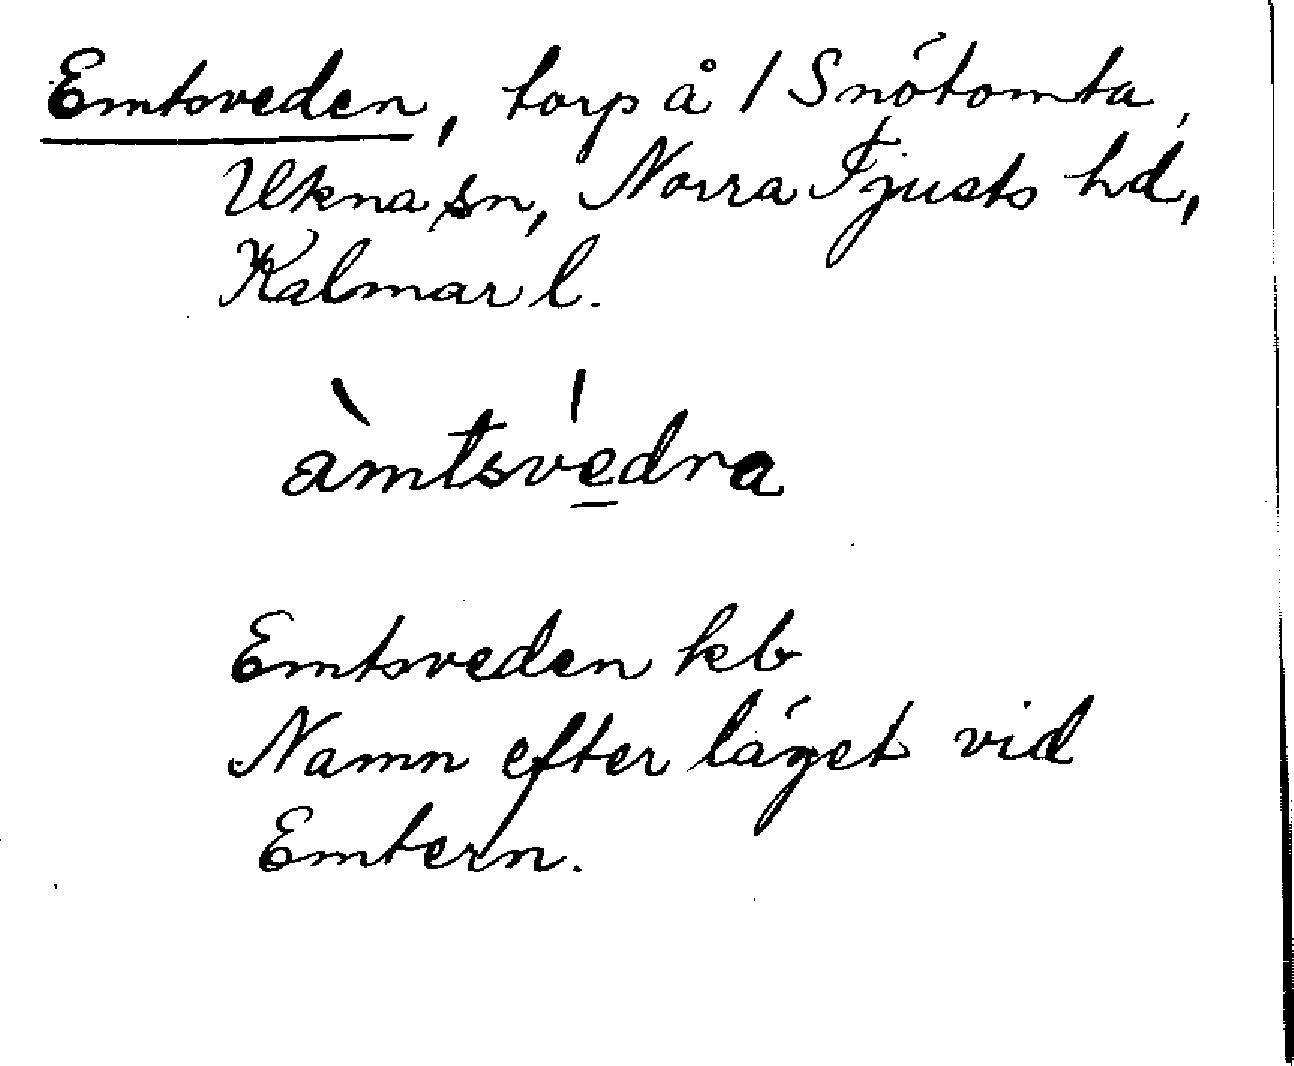 Emtsveden, torp å 1 Snötomta,
Ukna sn, Norra Tjusts hd,
Kalmar l.
àmtsvédra
Emtsveden kb
Namn efter läget vid
Emtern.